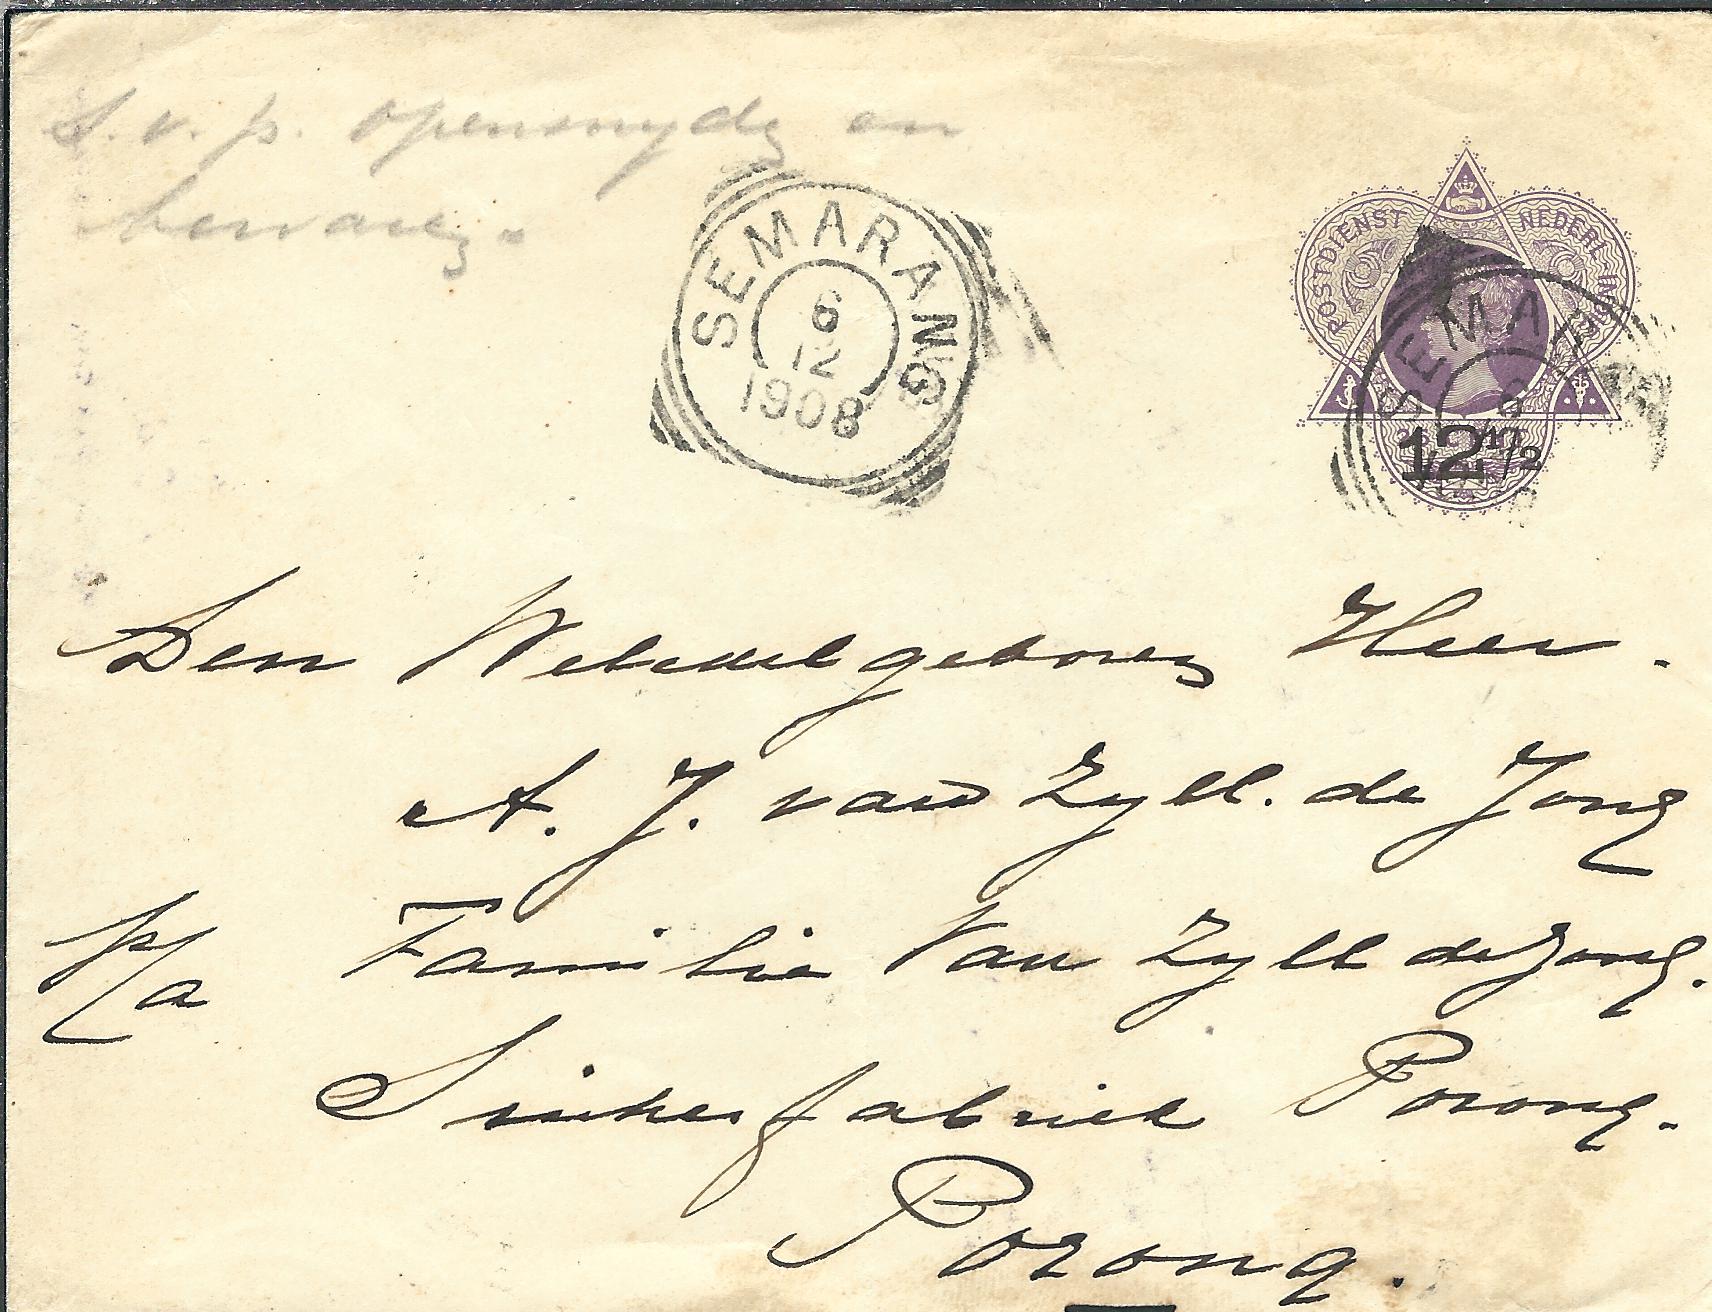 S. v. p. opensnyde en
bewaren.
SEMARANG
6
12
1908
POSTDIENST NEDERL-INDIE
SEMA
12 1/2
Den Weledelgeboren Heer.
A. J. van Zyll. de Jong
p/a Familie Van Zyll de Jong.
Suikerfabriek Porong.
Porong.